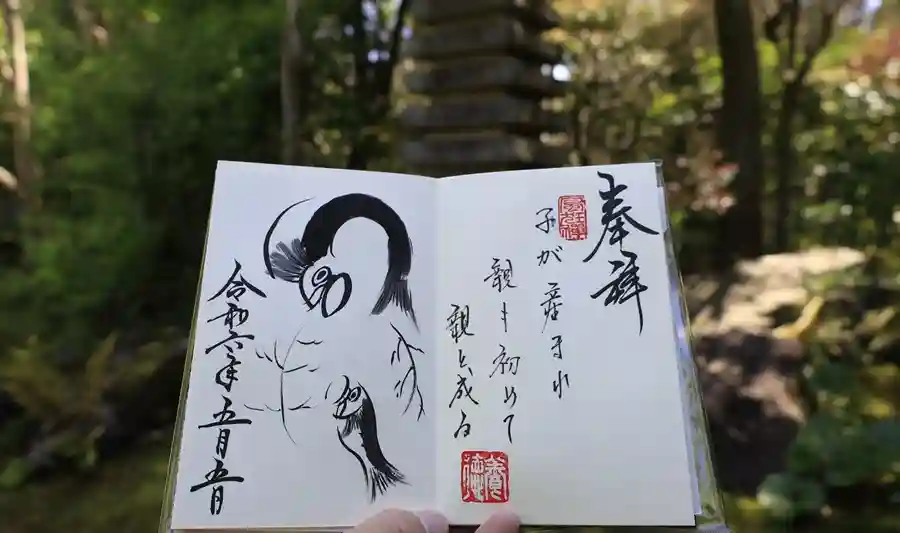 奉拝
子が産まれ
親も初めて
親と成る
養徳
令和六年五月五日